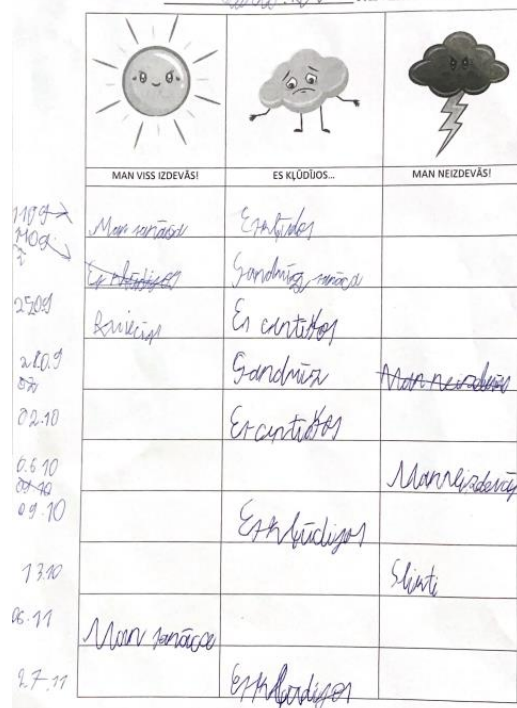 MAN VISS IZDEVĀS! ES KĻŪDĪJOS... MAN NEIZDEVĀS!
Man sanāca Es kļūdos
Es kļūdījos Gandrīz sanāca
25.09 Es centīdos
28.09 Gandrīz Man neizdevās
02.10 Es centīdos
06.10 Man neizdevās
09.10
09.10 Es kļūdijos
13.10 Slikti
06.11 Man sanāca
27.11 Es kļūdijos